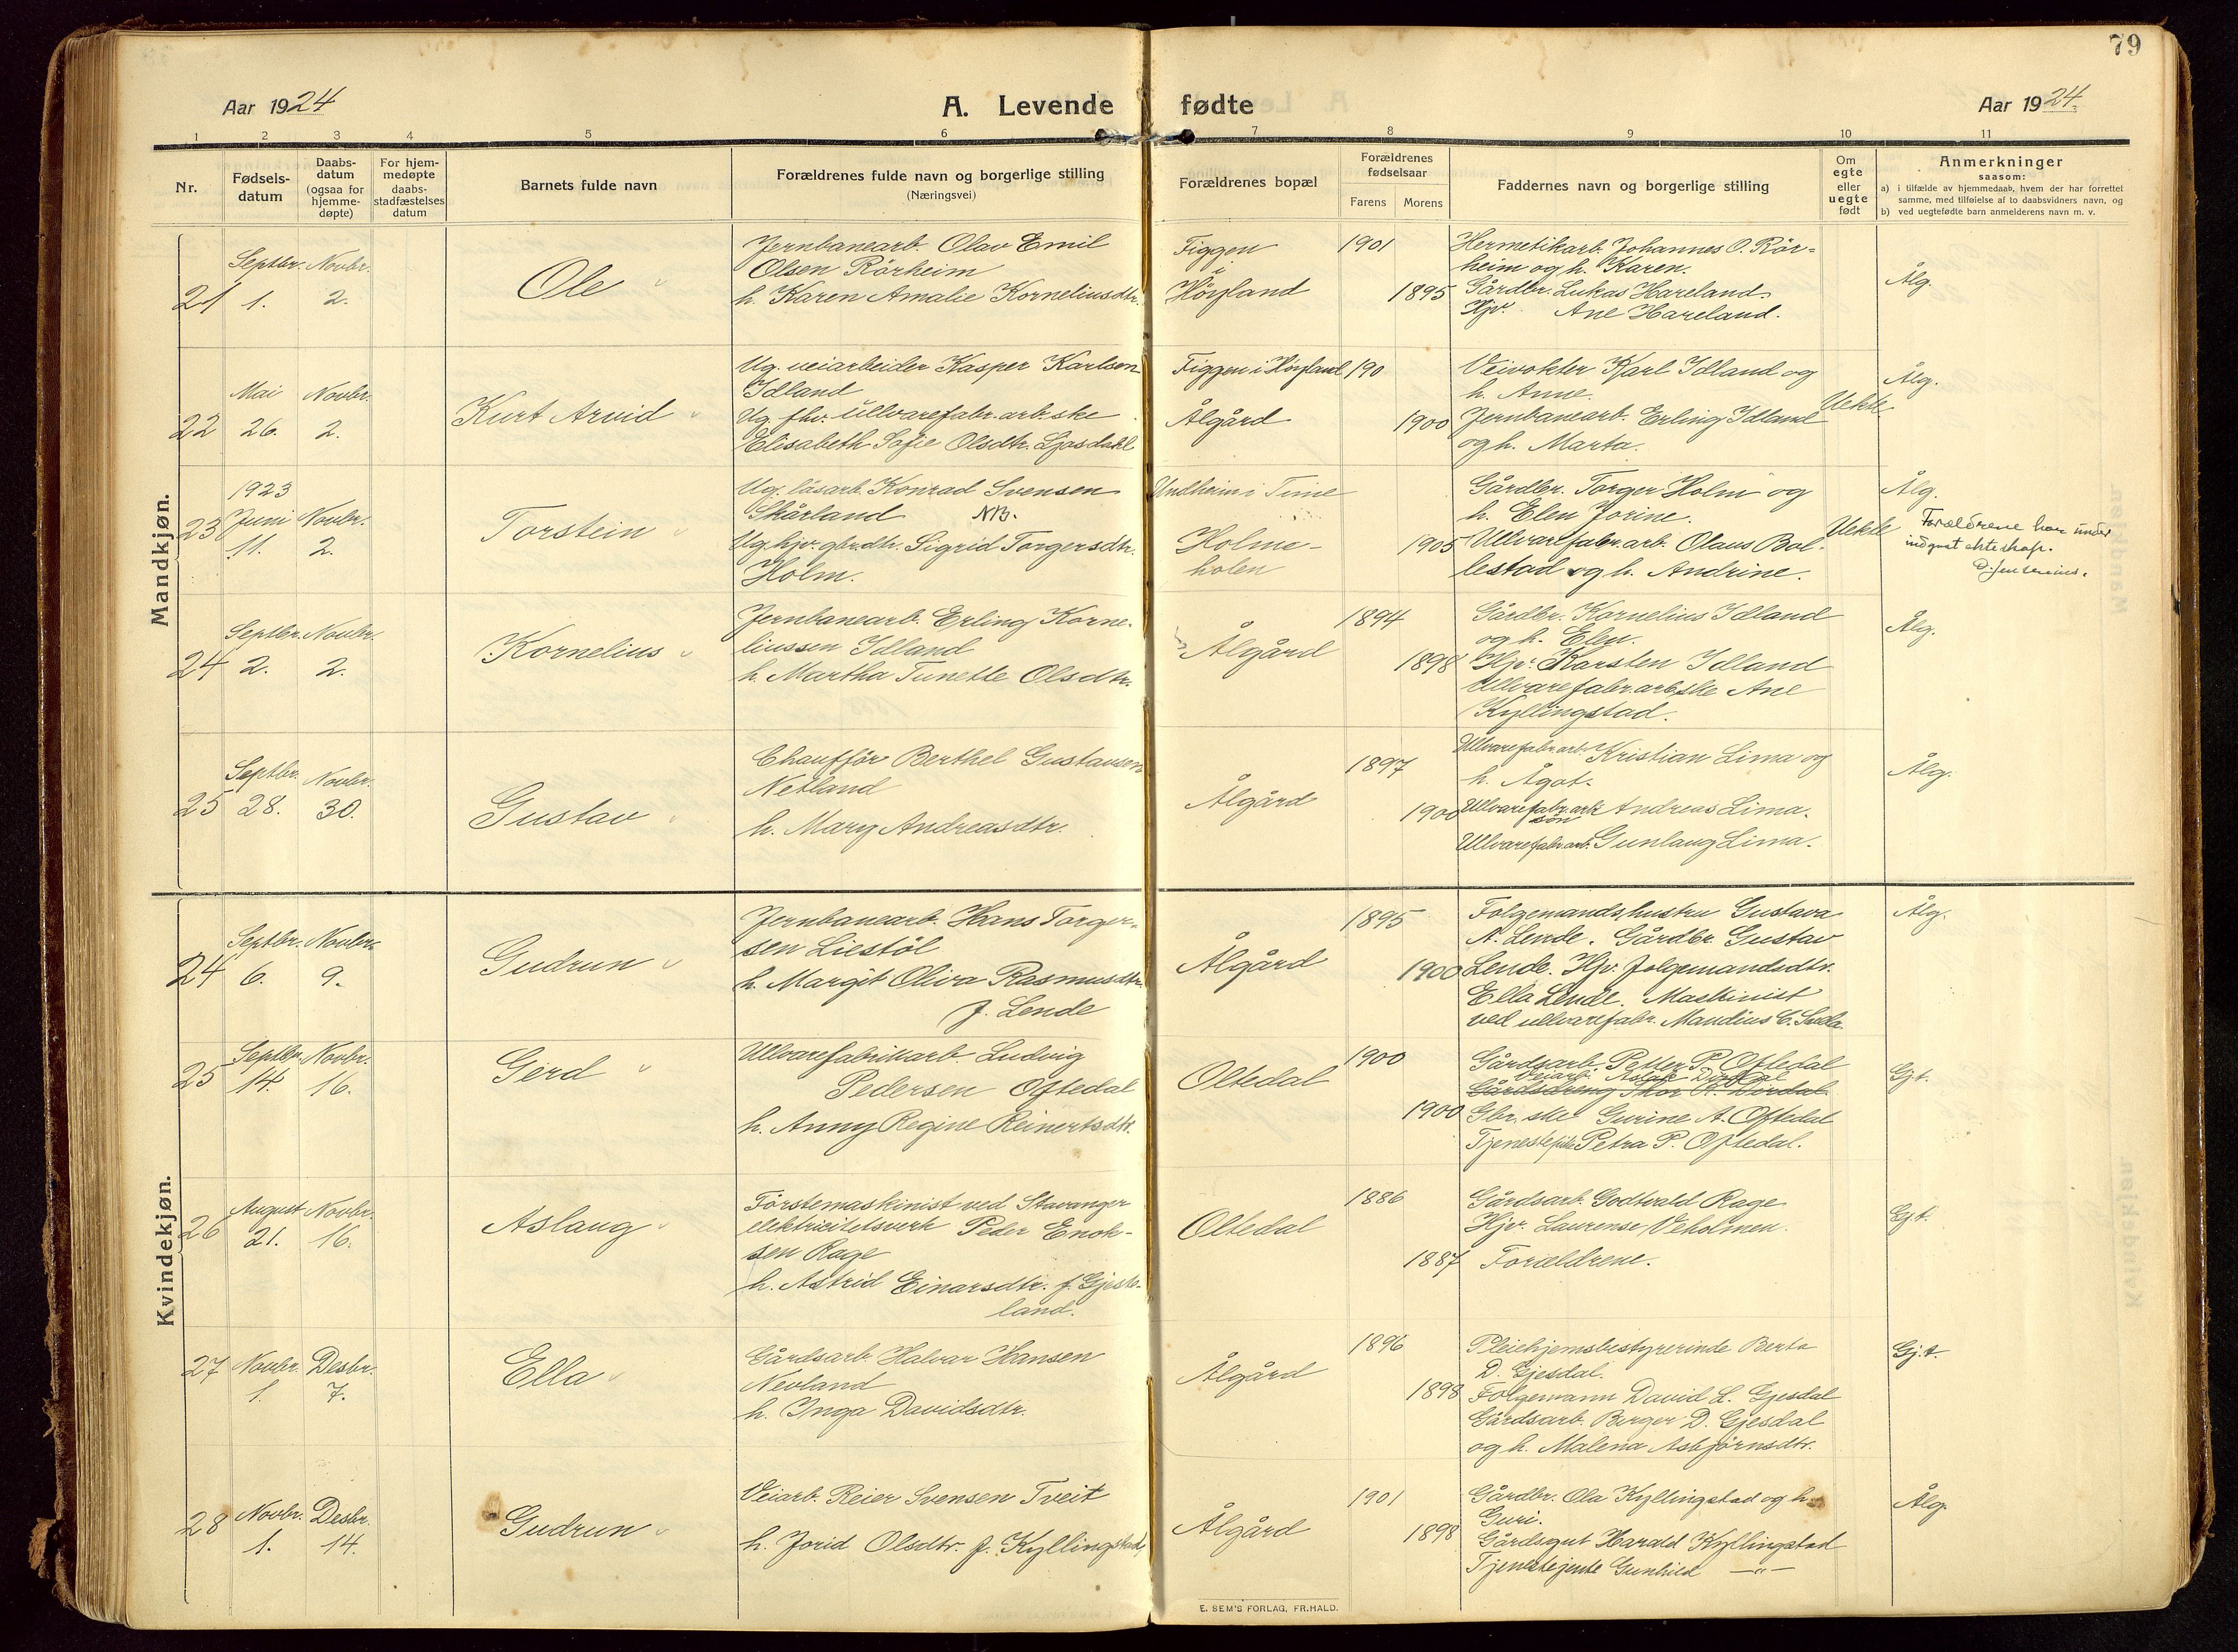 79
Aar 1924
A. Levende fødte
Aar 1924.
1 2 3 4 5 6 7 8 9 10 11
Nr.
Fødsels-
datum
Daabs-
datum
(ogsaa for
hjemme-
døpte)
For hjem-
medøpte
daabs-
stadfæstelses
datum
Barnets fulde navn
Forældrenes fulde navn og borgerlige stilling
(Næringsvei)
Forældrenes bopæl
Forældrenes
fødselsaar
Farens Morens
Faddernes navn og borgerlige stilling
Om
egte
eller
uegte
født
Anmerkninger
saasom:
a) i tilfælde av hjemmedaab, hvem der har forrettet
samme, med tilføielse af to daabsvidners navn, og
b) ved uegtefødte barn anmelderens navn m. v.
Mandkjøn.
21
Septbr.
1.
Novbr.
2.
Ole
Jernbanearb. Olav Emil
Olsen Rörheim
h. Karen Amalie Korneliusdtr.
Figgen
i
Høyland
1901
1895
Hermetikarb. Johannes O. Rör-
heim og h. Karen.
Gårdbr. Lukas Hareland.
Hjv. Ane Hareland.
Ålg.
22
Mai
26.
Novbr.
2.
Kurt Arvid
Ug. veiarbeider Kasper Karlsen
Idland
Ug. fhv. ullvarefabr.arb.ske
Elisabeth Sofie Olsdtr. Ljosdahl
Figgen i Høyland
Ålgård
190
1900
Veivokter Karl Idland og
h. Anne.
Jernbanearb. Erling Idland
og h. Marta.
Uekte
Ålg.
23
1923
Juni
11.
Novbr.
2.
Torstein
Ug. låsarb. Konrad Svensen
Skårland NB.
Ug. hjv. gbr.dtr. Sigrid Torgersdtr.
Holm.
Undheim i Time
Holme-
holen
1905
Gårdbr. Torger Holm og
h. Elen Jorine.
Ullvarefabr.arb. Olaus Bol-
lestad og h. Andrine.
Uekte
Ålg.
Forældrene har under
indgaat ekteskap.
24
Septbr.
2.
Novbr.
2.
Kornelius
Jernbanearb. Erling Korne-
liussen Idland
h. Martha Tunette Olsdtr.
Ålgård
1894
1898
Gårdbr. Kornelius Idland
og h. Elen.
Hjv. Karsten Idland
Ullvarefabr.arb.ske Ane
Kyllingstad.
Ålg.
25
Septbr.
28.
Novbr.
30.
Gustav
Chauffør Berthel Gustavsen
Netland
h. Mary Andreasdtr.
Ålgård
1897
1900
Ullvarefabr.arb. Kristian Lima og
h. Ågot.
Ullvarefabr.arb. Andreas Lima.
søn
Ullvarefabr.arb. Gunlaug Lima.
Ålg.
Kvindekjøn.
24
Septbr.
6.
Novbr.
9.
Gudrun
Jernbanearb. Hans Torger-
sen Liestöl
h. Margit Oliva Rasmusdtr.
f. Lende
Ålgård
1895
1900
Folgemandshustru Gustava
N. Lende. Gårdbr. Gustav
Lende. Hjv. folgemandsdtr.
Ella Lende. Maskinist
ved ullvarefabr. Maudius C.
Ålg.
25
Septbr.
14.
Novbr.
16.
Gerd
Ullvarefabrikarb. Ludvig
Pedersen Oftedal
h. Anny Regine Reinertsdtr.
Oltedal
1900
1900
Gårdsarb. Petter P. Oftedal
Veiarb. Aslak Dirdal
Gårdsdreng Thor A. Dirdal
Gbr.ske Gurine A. Oftedal
Tjenestepike Petra P. Oftedal.
Gjt.
26
August
21.
Novbr.
16.
Aslaug
Förstemaskinist ved Stavanger
elektricitetsverk Peder Enok-
sen Rage
h. Astrid Einarsdtr. f. Gjeste-
land.
Oltedal
1886
1887
Gårdsarb. Godtvald Rage
Hjv. Laurense Veholmen.
Forældrene.
Gjt.
27
Novbr.
1.
Desbr.
7.
Ella
Gårdsarb. Halvar Hansen
Nevland
h. Inga Davidsdtr.
Ålgård
1896
1898
Pleiehjemsbestyrerinde Berta
D. Gjesdal.
Folgemann David L. Gjesdal
Gårdsarb. Birger D. Gjesdal
og h. Malena Asbjørnsdtr.
Gj.t.
28
Novbr.
1.
Desbr.
14.
Gudrun
Veiarb. Reier Svensen Tveit
h. Jorid Olsdtr. f. Kyllingstad
Ålgård
1901
1898
Gårdbr. Ola Kyllingstad og h.
Guri.
Gårdsgut Harald Kyllingstad
Tjenestejente Gunhild —"—
Ålg.
E. SEM'S FORLAG, FR.HALD.